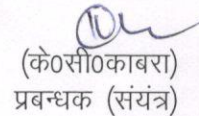 (के0सी0काबरा)
प्रबन्धक (संयंत्र)